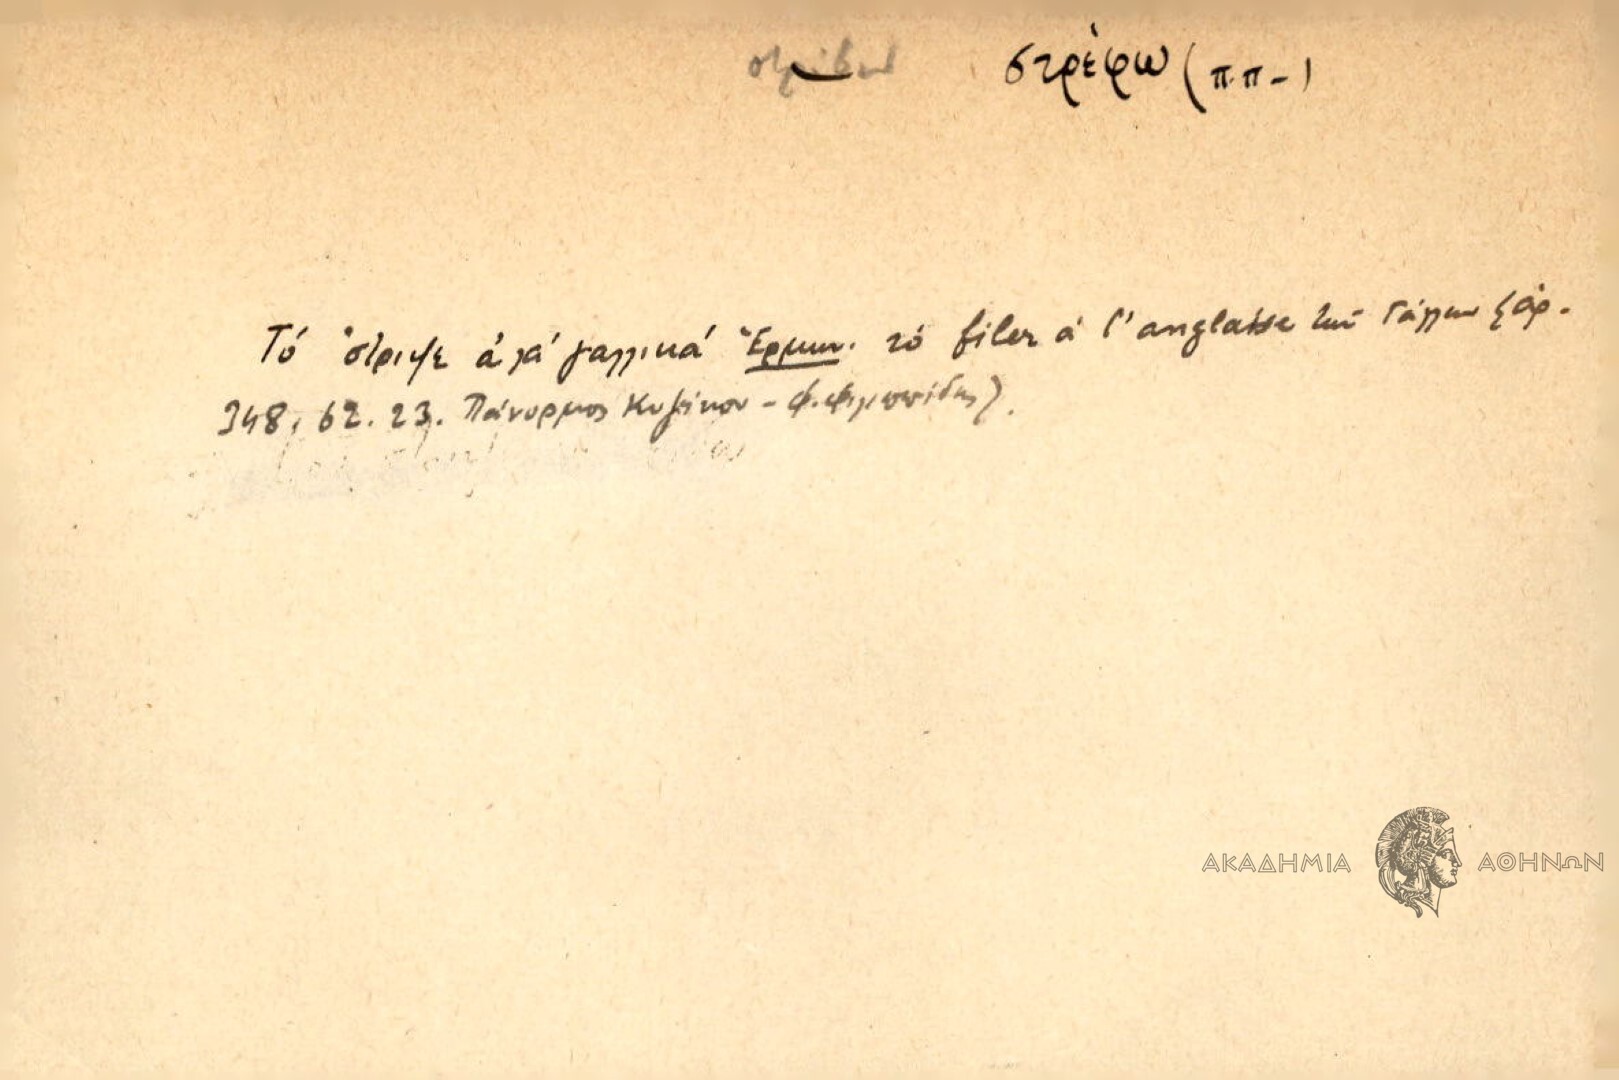 στρίβω στρέφω (π.π-)
Τό ἔστριψε ἀ λά γαλλικά Ἑρμην. τό filer à l'anglaise τῶν Γάλλων
348, 62. 23. Πάνορμος Κυζίκου - Φ. Φιλιππίδης).
ΑΚΑΔΗΜΙΑ ΑΘΗΝΩΝ